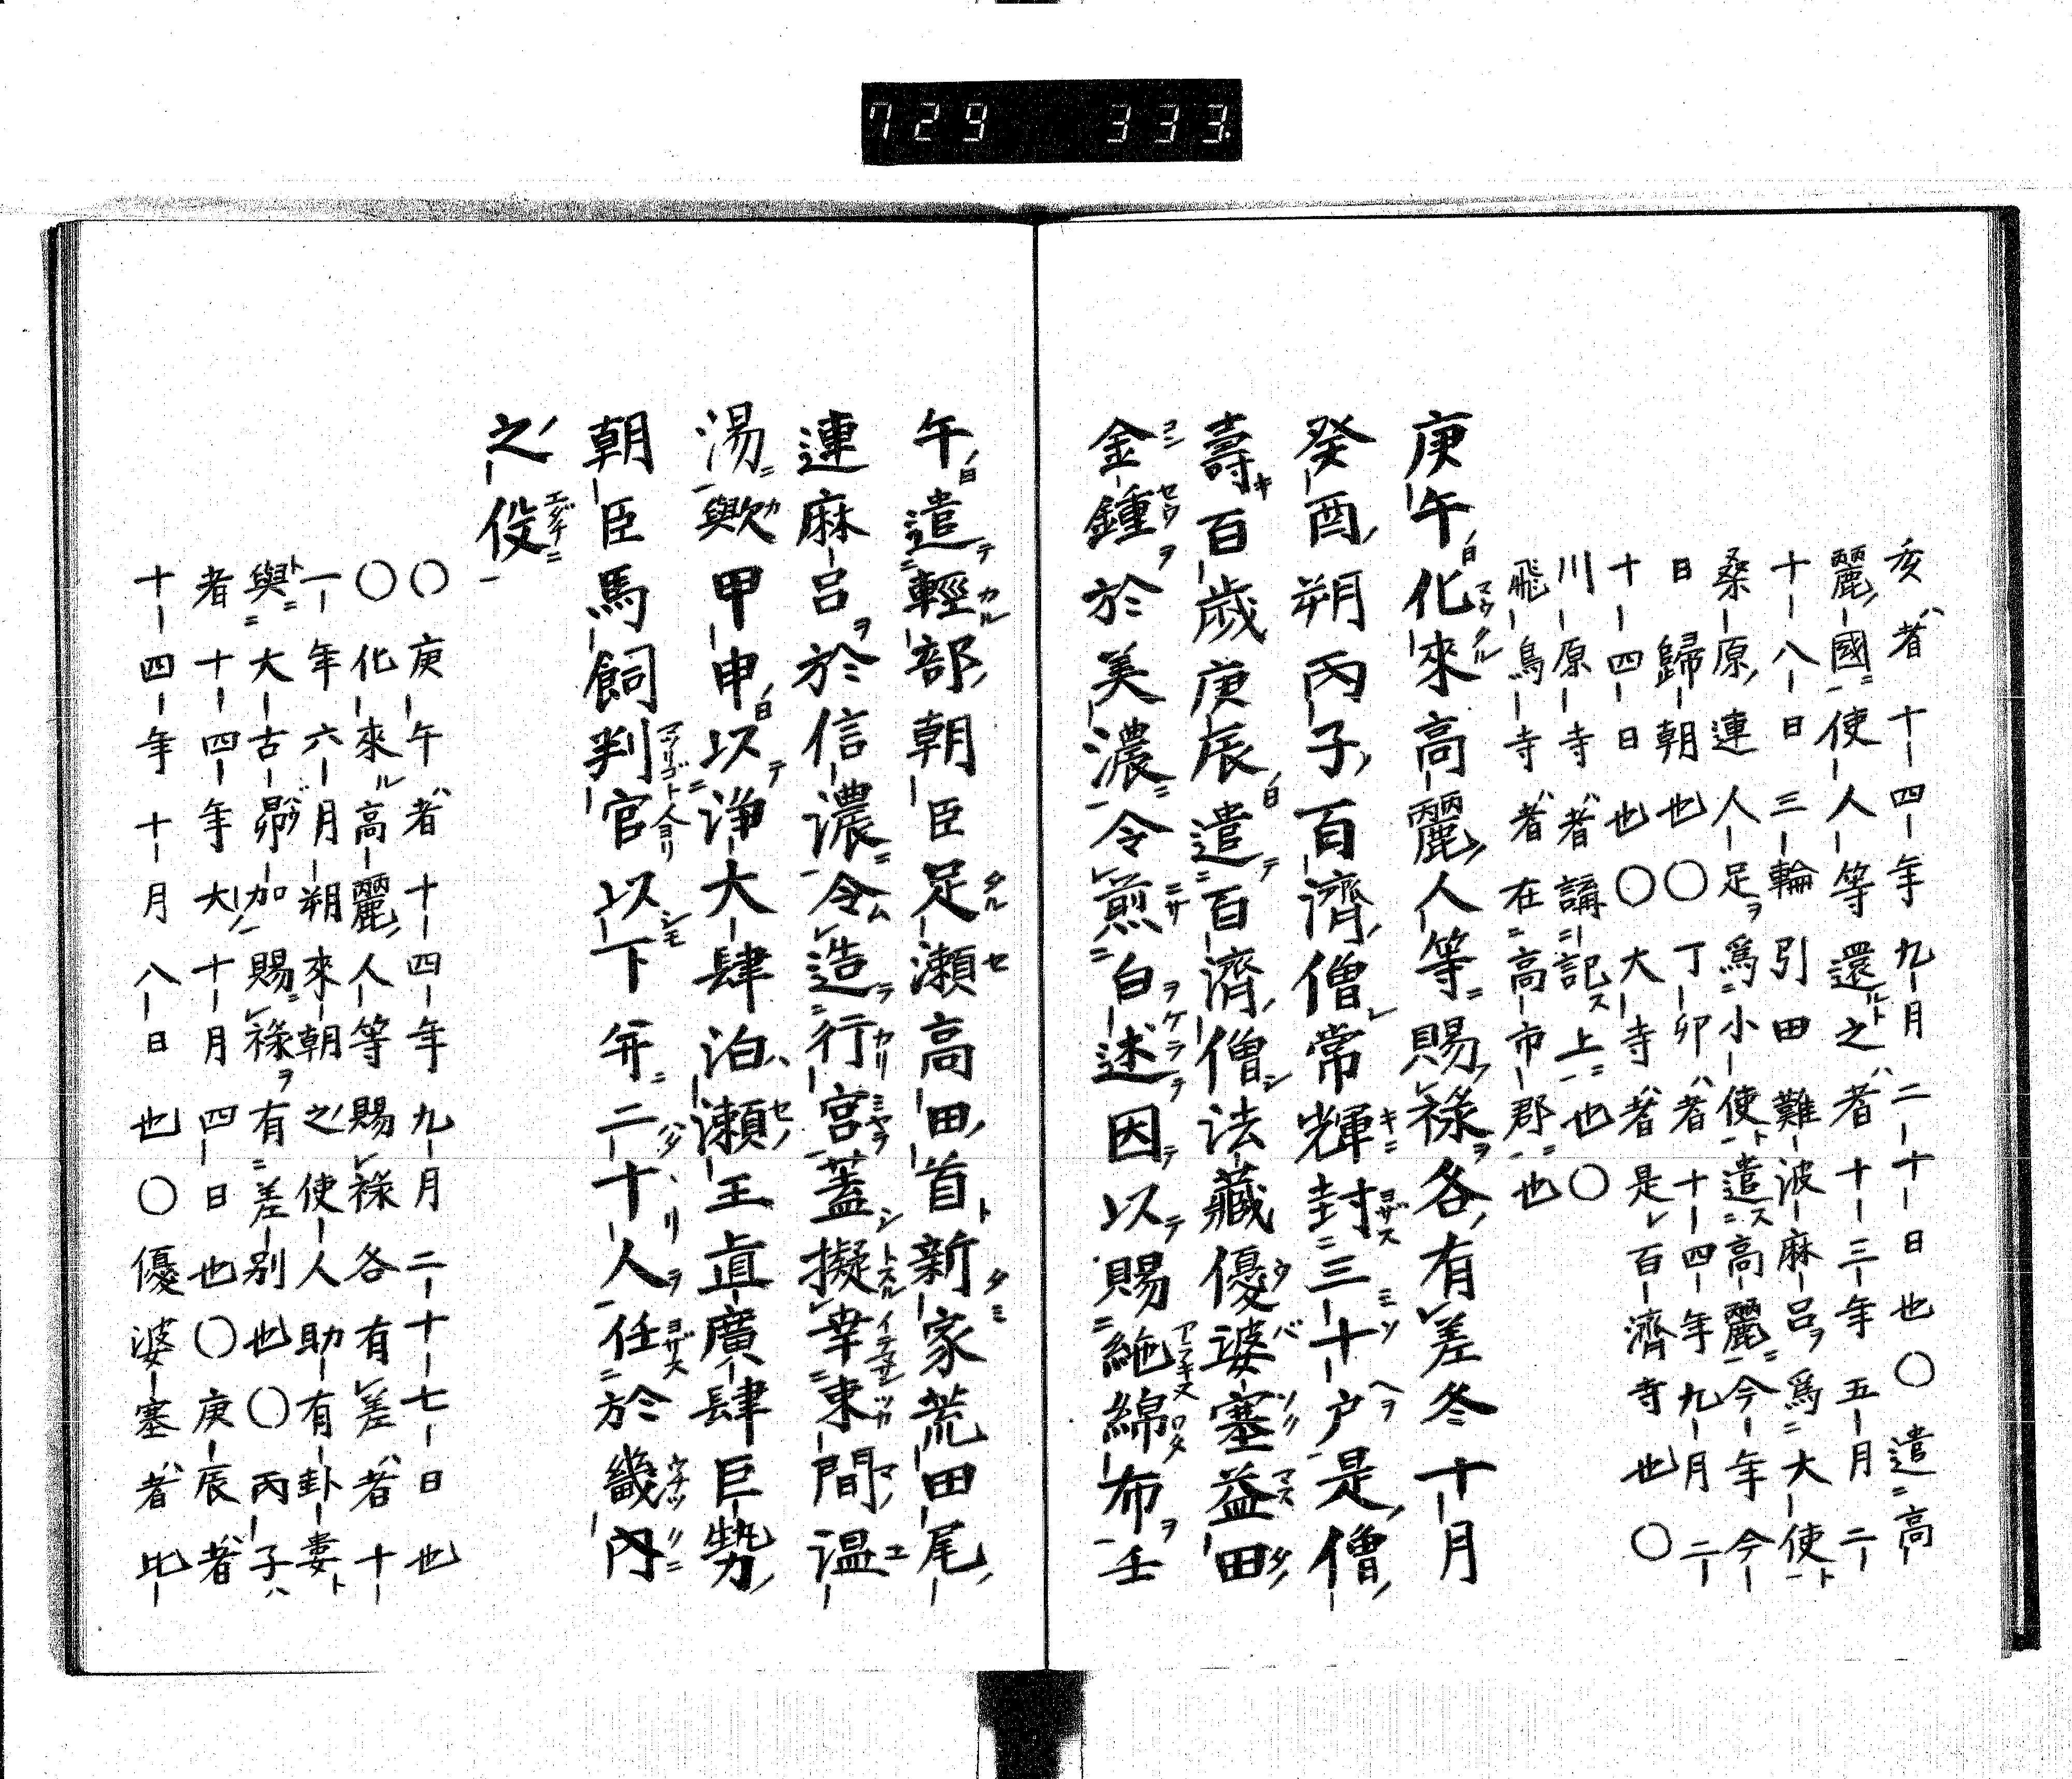 729 333
亥者十四年九月二十日也〇遣高
麗國使人等還之者十三年五月二
十八日三輪引田難波麻呂爲大使
桑原連人足爲小使遣高麗今年今
日歸朝也〇丁卯者十四年九月二
十四日也〇大寺者是百濟寺也〇
川原寺者講記上也〇
飛鳥寺者在高市郡也
庚午化來高麗人等賜祿各有差冬十月
癸酉朔丙子百濟僧常輝封三十戸是僧
壽百歲庚辰遣百濟僧法藏優婆塞益田
金鍾於美濃令煎白述因以賜絁綿布壬
午遣輕部朝臣足瀨高田首新家荒田尾
連麻呂於信濃令造行宮蓋擬幸束間温
湯歟甲申以淨大肆泊瀨王直廣肆巨勢
朝臣馬飼判官以下并二十人任於畿內
之役
〇庚午者十四年九月二十七日也
〇化來高麗人等賜祿各有差者十
一年六月朔來朝之使人助有卦婁
與大古昴加賜祿有差別也〇丙子
者十四年大十月四日也〇庚辰者
十四年十月八日也〇優婆塞者比